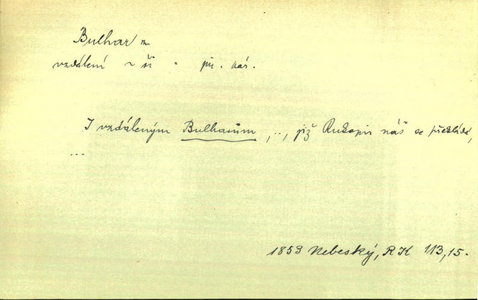 Bulhar m.
vzdálení
I vzdáleným Bulharům, .., již Rukopis náš se překládá,
...
1853 Nebeský, RK 113,15.